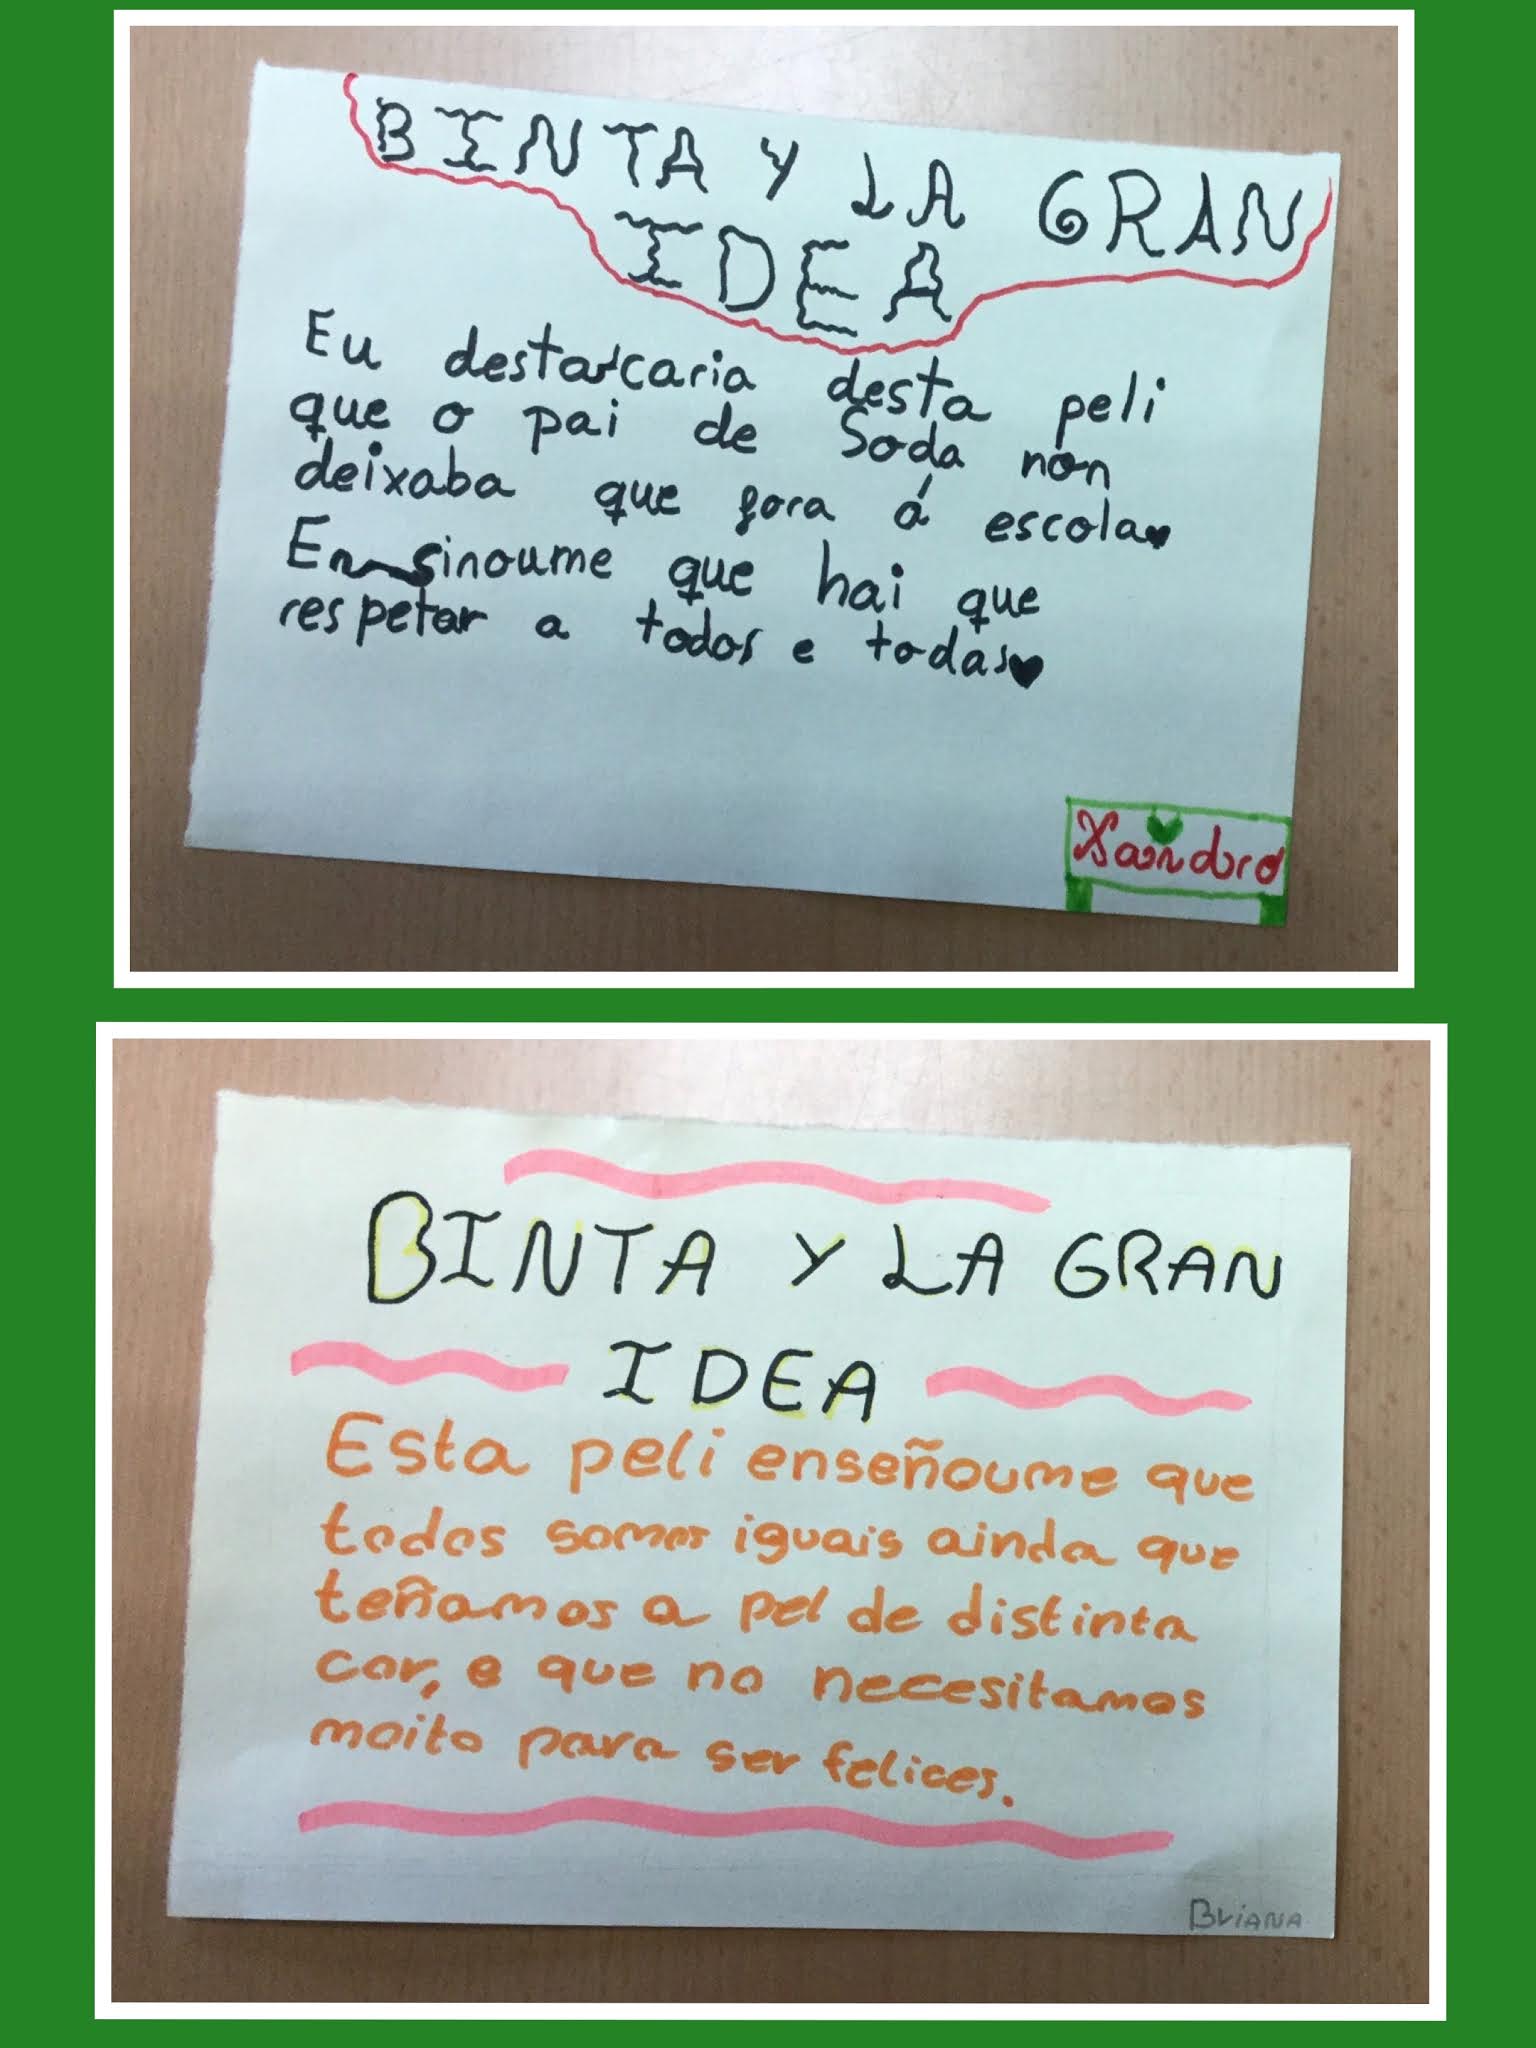 BINTA Y LA GRAN
IDEA
Eu destarcaria desta peli
que o pai de Soda non
deixaba que fora á escola
Ensinoume que hai que
respetar a todos e todas
Xandro
BINTA Y LA GRAN
IDEA
Esta peli enseñoume que
todos somos iguais ainda que
teñamos a pel de distinta
cor, e que no necesitamos
moito para ser felices.
BriANA